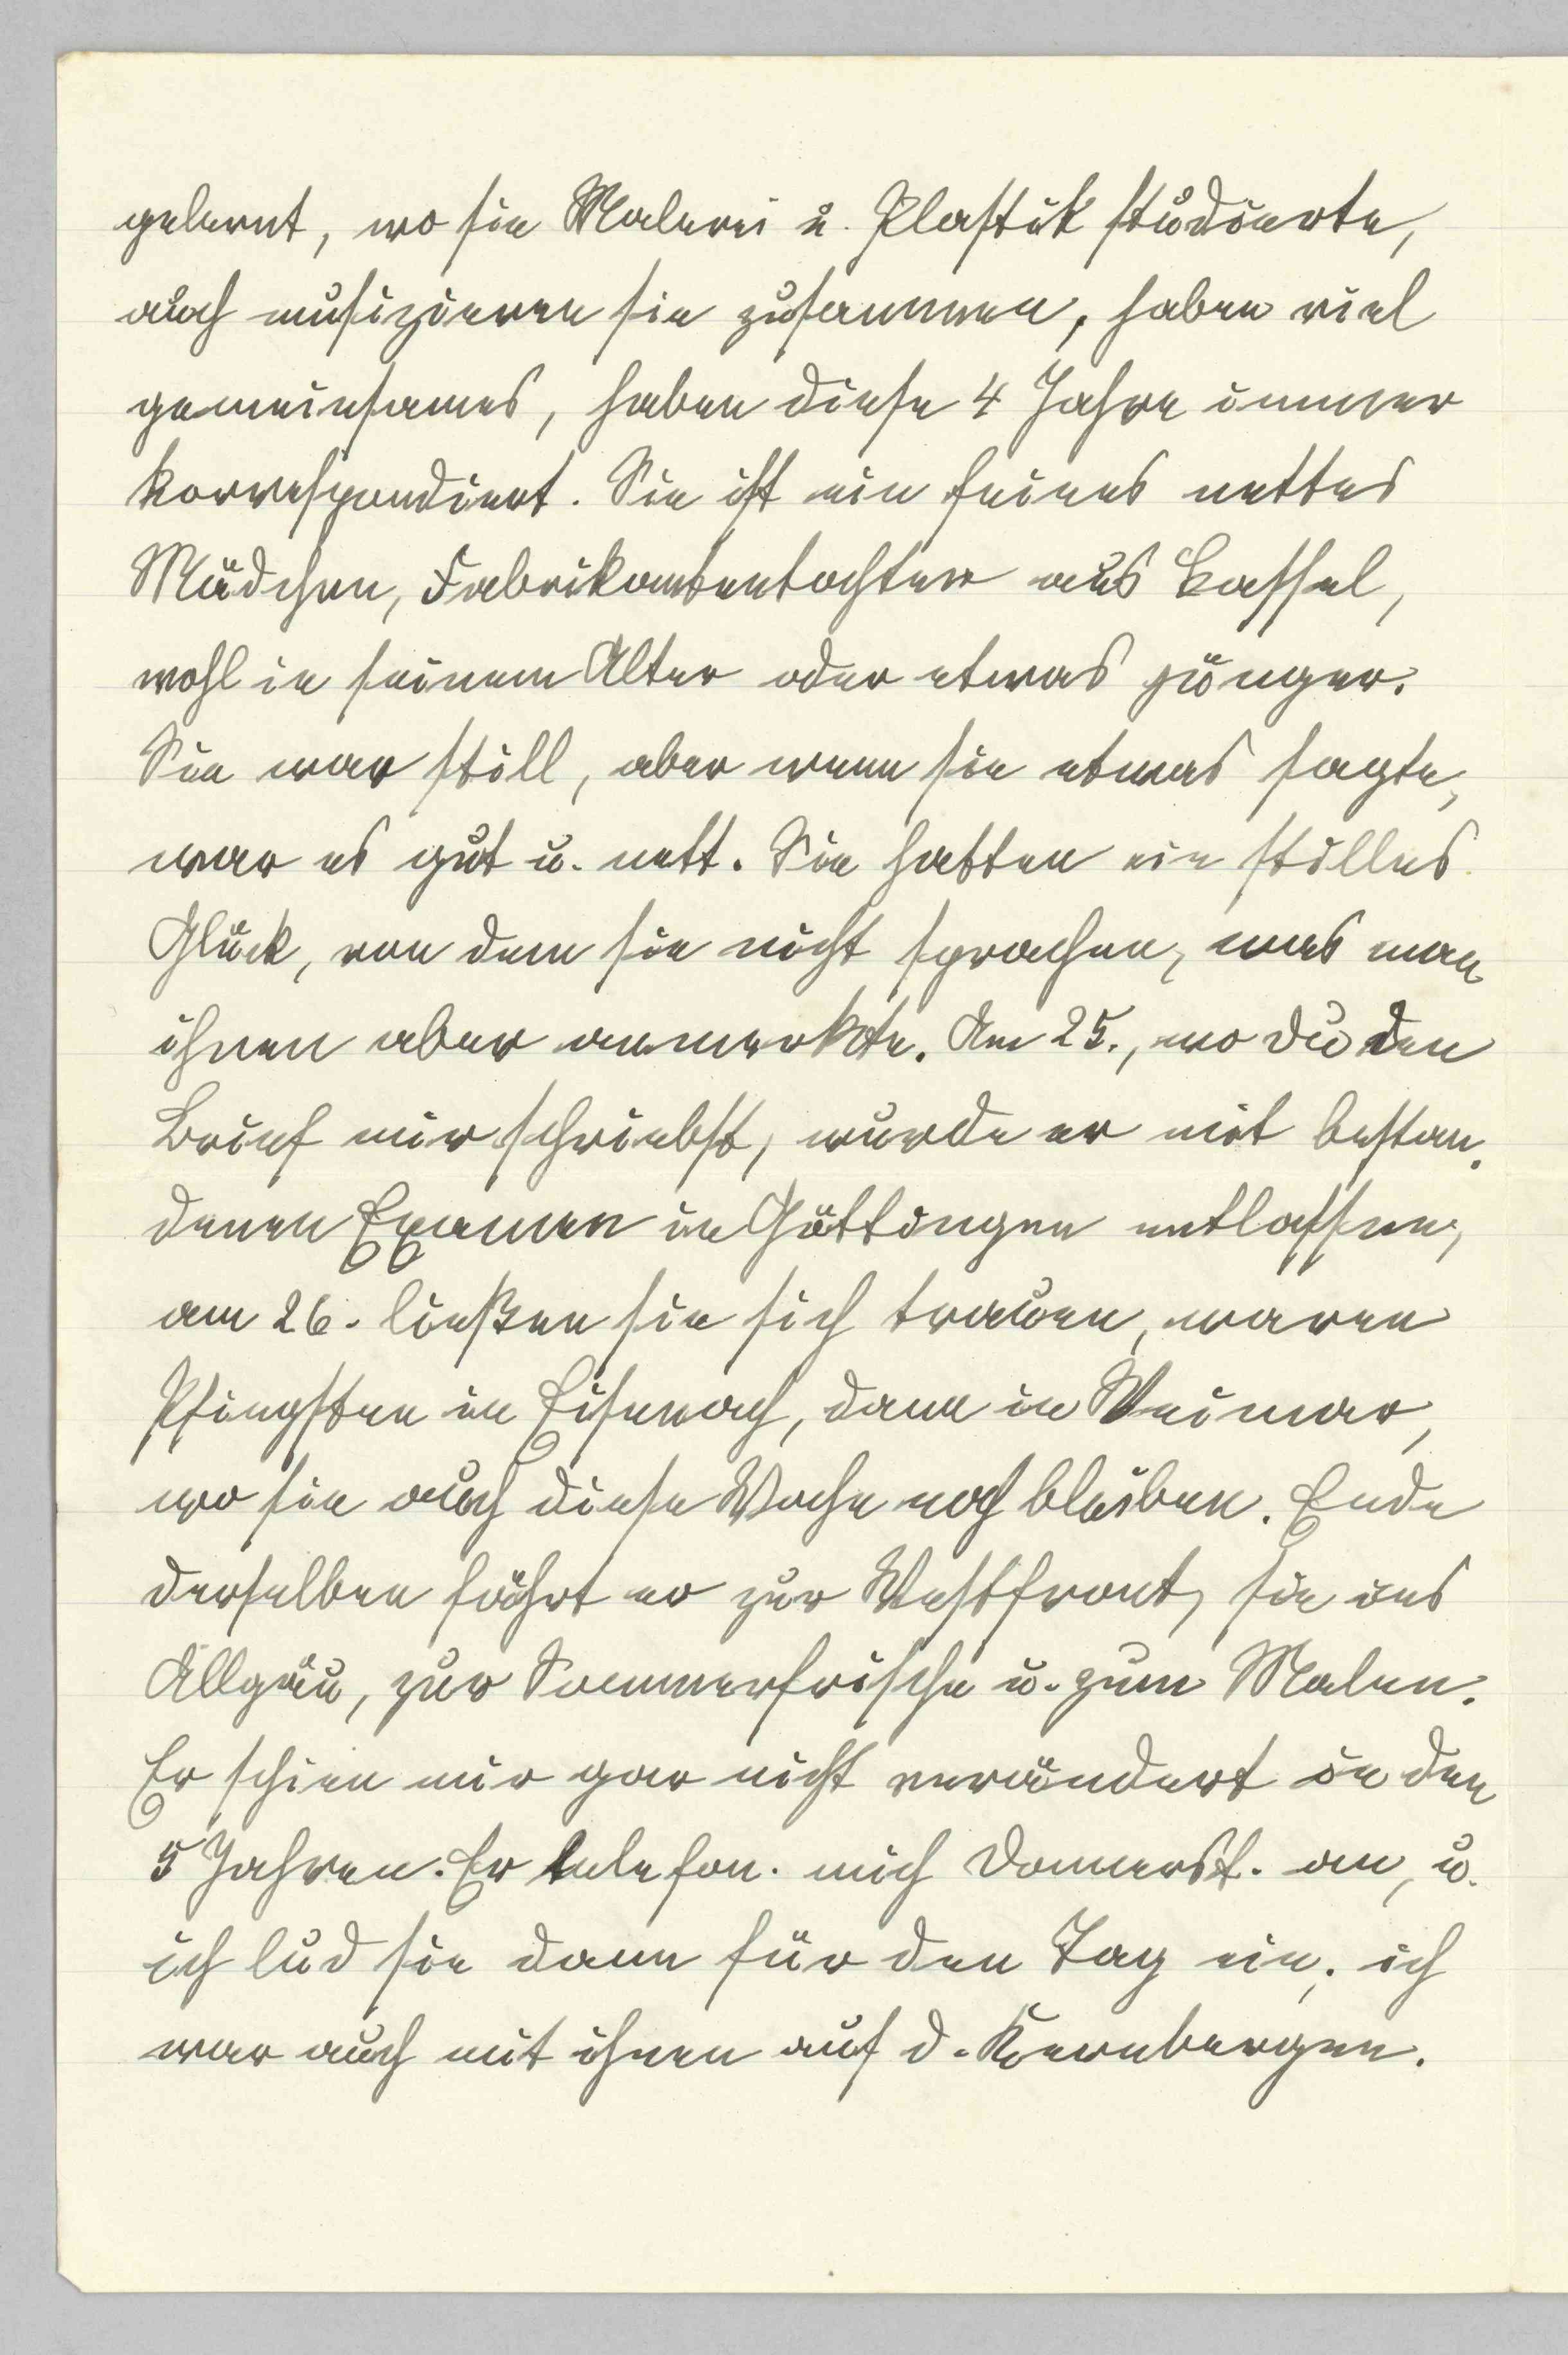 gelernt, wo sie Malerei u. Plastik studierte,
auch musizieren sie zusammen, haben viel
gemeinsames, haben diese 4 Jahre immer
korrespondiert. Sie ist ein feines nettes
Mädchen, Fabrikantentochter aus Kassel,
wohl in seinem Alter oder etwas jünger.
Sie war still, aber wenn sie etwas sagte,
war es gut u. nett. Sie hatten ein stilles
Glück, von dem sie nicht sprachen, was man
ihnen aber anmerkte. Am 25., wo du den
Brief mir schriebst, wurde er mit bestan-
denen Examen in Göttingen entlassen,
am 26. ließen sie sich trauen, waren
Pfingsten in Eisenach, dann in Weimar,
wo sie auch diese Woche noch bleiben. Ende
derselben fährt er zur Westfront, sie ins
Allgäu, zur Sommerfrische u. zum Malen.
Er schien mir gar nicht verändert in den
5 Jahren. Er telefon. mich Donnerst. an, u.
ich lud sie dann für den Tag ein; ich
war auch mit ihnen auf d. Kernbergen.